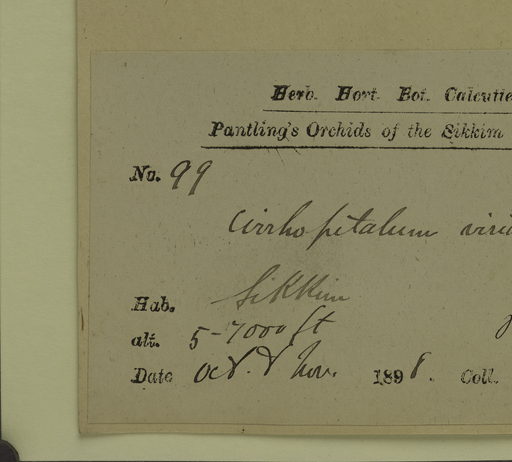 Herb. Hort. Bot. Calcutte
Pantling's Orchids of the Sikkim
No. 99
Cirrhopetalum viri
Hab. Sikkim
alt. 5-7000 ft
Date Oct. & Nov. 1898. Coll.